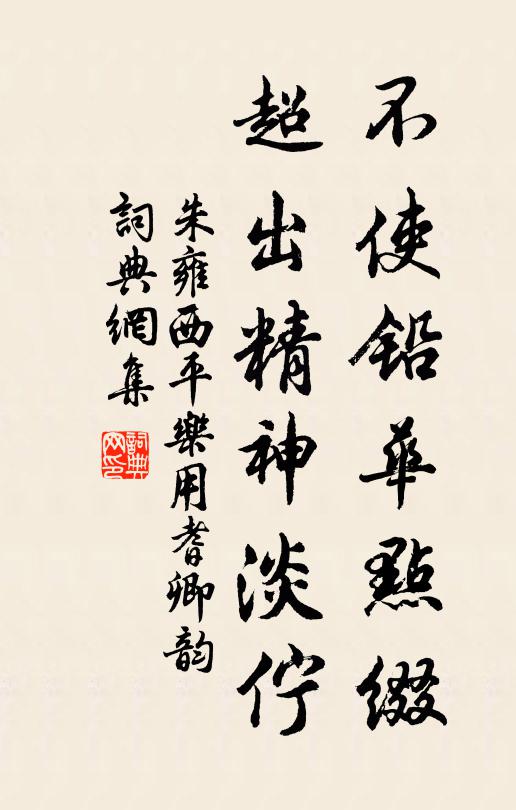 不使鉛華點綴
超出精神淡佇
朱雍西平樂用耆卿韵
詞典網集
詞典网印